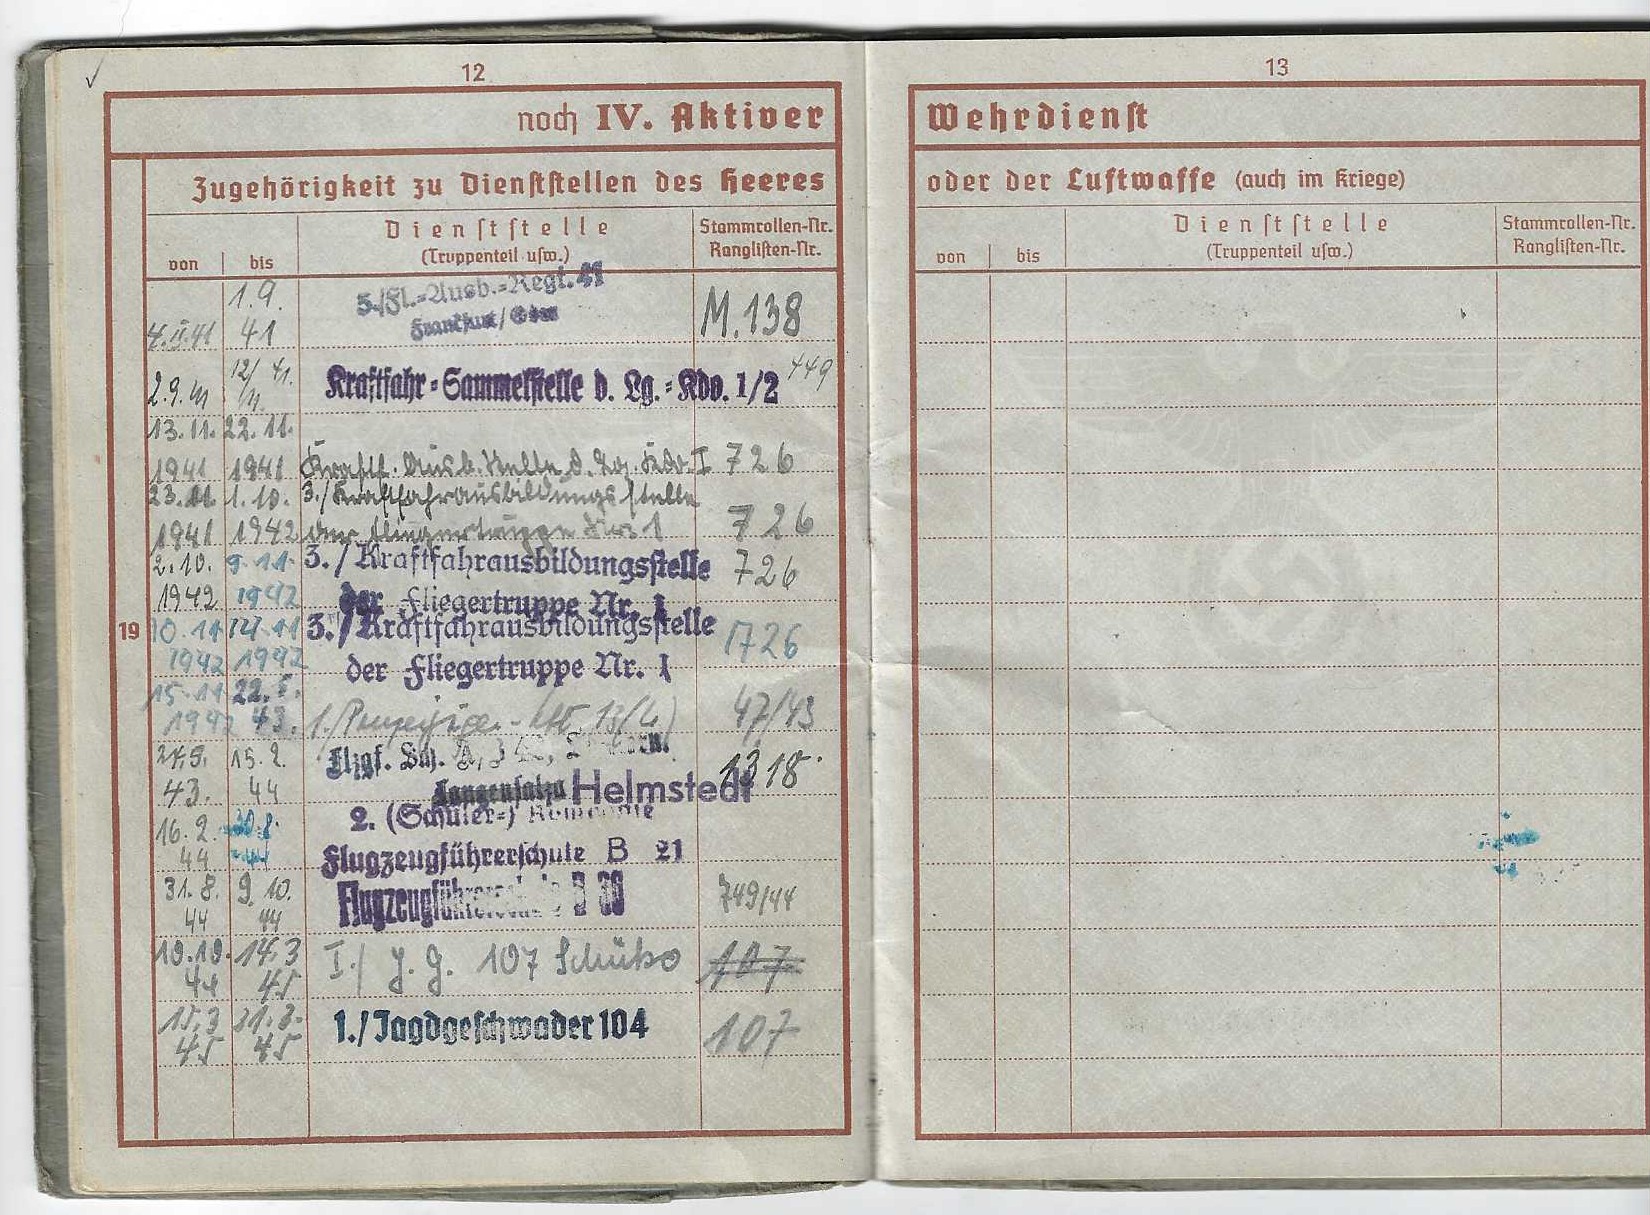 12
noch IV. Aktiver
Zugehörigkeit zu Dienststellen des Heeres
von bis
Dienststelle
(Truppenteil usw.)
Stammrollen-Nr.
Ranglisten-Nr.
1.9.
41
5./Fl.=Ausb.=Regt. 41
Frankfurt/Oder
M. 138
12/ 41.
2.9.
Kraftfahr=Sammelstelle d. Lg.=Kdo. 1/2
449
13.11. 22.11.
1941 1941 Kraftf. Ausb. Stelle d. Lg. Kdo. I 726
23.11. 1.10. 3./Kraftfahrausbildungsstelle
1941 1942 der Fliegertruppe Nr. 1 726
2.10. 9.11. 3./Kraftfahrausbildungsstelle 726
1942 1942 der Fliegertruppe Nr. I
19
10.11 14.11 3./Kraftfahrausbildungsstelle 1726
1942 1942 der Fliegertruppe Nr. I
15.11 22.5.
1942 43. 47/43
15.2.
43. 44
Langensalza Helmstedt
1318
16.2. 30.8.
44 44
2. (Schüler=) Kompanie
Flugzeugführerschule B 21
31.8. 9.10.
44 44
Flugzeugführerschule B 30
749/44
10.10. 14.3
44 45
I./ J.G. 107
107
15.3 31.3.
45 45
1./Jagdgeschwader 104
107
13
Wehrdienst
oder der Luftwaffe (auch im Kriege)
von bis
Dienststelle
(Truppenteil usw.)
Stammrollen-Nr.
Ranglisten-Nr.